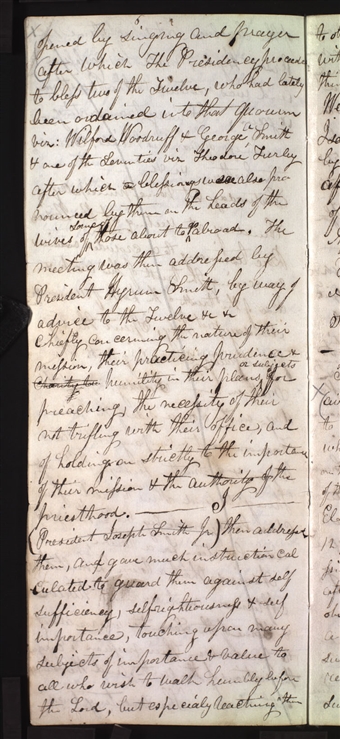 opened by singing and prayer
after which the Presidency proceeded
to bless two of the Twelve, who had lately
been ordained into that quorum
viz: Wilford Woodruff & George Smith
& one of the Seventies viz Theodore Turley
after which blessings were also pro
nounced by them on the heads of the
wives of some of those about to go abroad. The
meeting was then addressed by
President Hyrum Smith, by way of
advice to the Twelve &c &c
chiefly concerning the nature of their
mission, their practicing prudence &
humility in their plans or subjects for
preaching, the necessity of their
not trifling with their office, and
of holding on strictly to the importance
of their mission & the authority of the
priesthood.
(President Joseph Smith Jr) then addressed
them, and gave much instruction cal
culated to guard them against self
sufficiency, selfrighteousness & self
importance, touching upon many
subjects of importance & value to
all who wish to walk humbly before
the Lord, but especialy teaching them